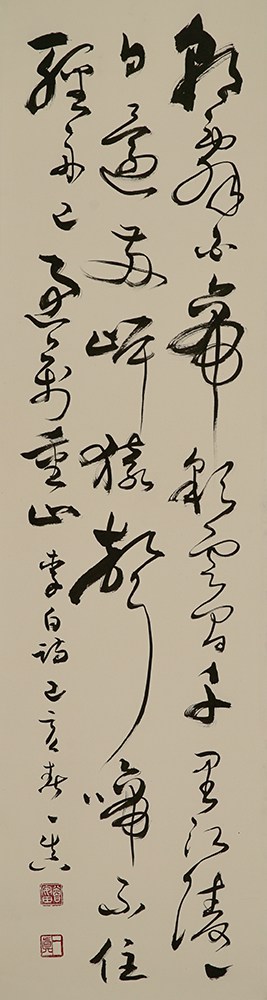 朝辭白帝彩雲間千里江陵一
日還兩岸猿聲啼不住
輕舟已過萬重山 李白詩 己亥春 一真